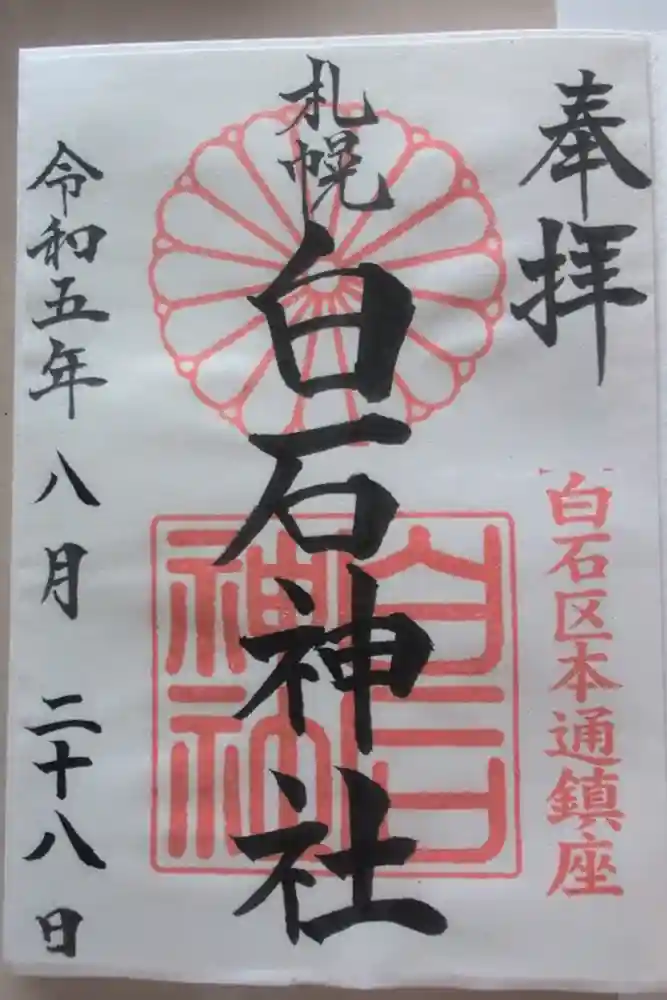 奉拝
白石区本通鎮座
札幌
白石神社
白石神社
令和五年 八月 二十八日